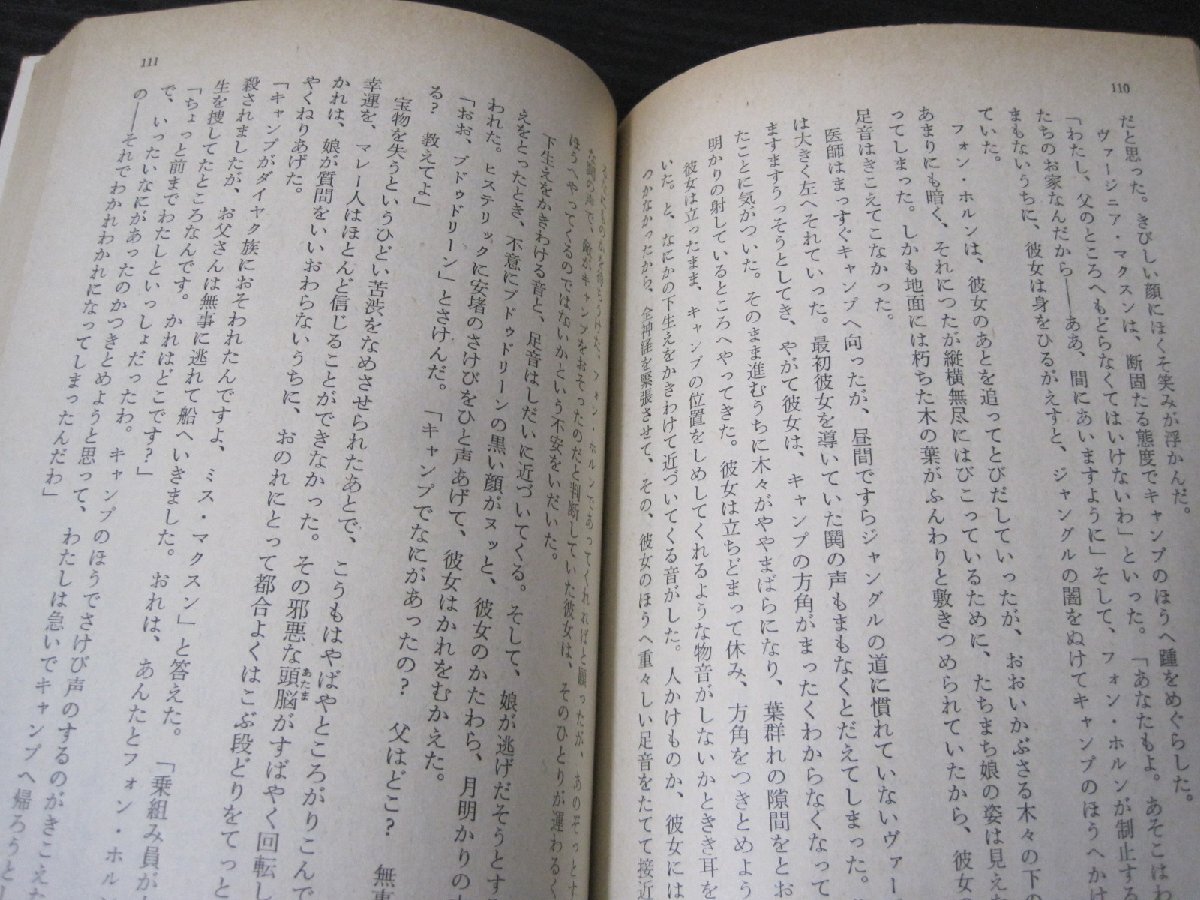 110
だと思った。きびしい顔にほくそ笑みが浮かんだ。
ヴァージニア・マクスンは、断固たる態度でキャンプのほうへ踵をめぐらした。
「わたし、父のところへもどらなくてはいけないわ」といった。「あなたもよ。あそこはわ
たちのお家なんだから――ああ、間にあいますように」そして、フォン・ホルンが制止する
まもないうちに、彼女は身をひるがえすと、ジャングルの闇をぬけてキャンプのほうへかけ
ていた。
フォン・ホルンは、彼女のあとを追ってとびだしていったが、おおいかぶさる木々の下の
あまりにも暗く、それにつたが縦横無尽にはびこっているために、たちまち娘の姿は見えた
ってしまった。しかも地面には朽ちた木の葉がふんわりと敷きつめられていたから、彼女の
足音はきこえてこなかった。
医師はまっすぐキャンプへ向ったが、昼間ですらジャングルの道に慣れていないヴァー
は大きく左へそれていった。最初彼女を導いていた鬨の声もまもなくとだえてしまった。
ますますうっそうとしてき、やがて彼女は、キャンプの方角がまったくわからなくなって
たことに気がついた。そのまま進むうちに木々がややまばらになり、葉群れの隙間をとお
明かりの射しているところへやってきた。彼女は立ちどまって休み、方角をつきとめよう
彼女は立ったまま、キャンプの位置をしめしてくれるような物音がしないかときき耳を
いた。と、なにかの下生えをかきわけて近づいてくる音がした。人かけものか、彼女には
のかなかったから、全神経を緊張させて、その、彼女のほうへ重々しい足音をたてて接近
111
フォン・ホルンであってくれればと願ったが、あのぞっとす
がキャンプをおそったのだと判断していた彼女は、そのひとりが運わるく
ほうへやってくるのではないかという不安をいだいた。
下生えをかきわける音と、足音はしだいに近づいてくる。そして、娘が逃げだそうとす
えをとったとき、不意にブドゥドリーンの黒い顔がヌッと、彼女のかたわら、月明かりの
われた。ヒステリックに安堵のさけびをひと声あげて、彼女はかれをむかえた。
「おお、ブドゥドリーン」とさけんだ。「キャンプでなにがあったの? 父はどこ? 無事
る? 教えてよ」
宝物を失うというひどい苦渋をなめさせられたあとで、こうもはやばやところがりこんで
幸運を、マレー人はほとんど信じることができなかった。その邪悪な頭脳(あたま)がすばやく回転し
かれは、娘が質問をいいおわらないうちに、おのれにとって都合よくはこぶ段どりをてっと
やくねりあげた。
「キャンプがダイヤク族におそわれたんですよ、ミス・マクスン」と答えた。「乗組み員が
殺されましたが、お父さんは無事に逃れて船へいきました。おれは、あんたとフォン・ホル
生を捜してたところなんです。かれはどこです?」
「ちょっと前までわたしといっしょだったわ。キャンプのほうでさけび声のするのがきこえた
で、いったいなにがあったのかつきとめようと思って、わたしは急いでキャンプへ帰ろうと
の――それでわかれわかれになってしまったんだわ」